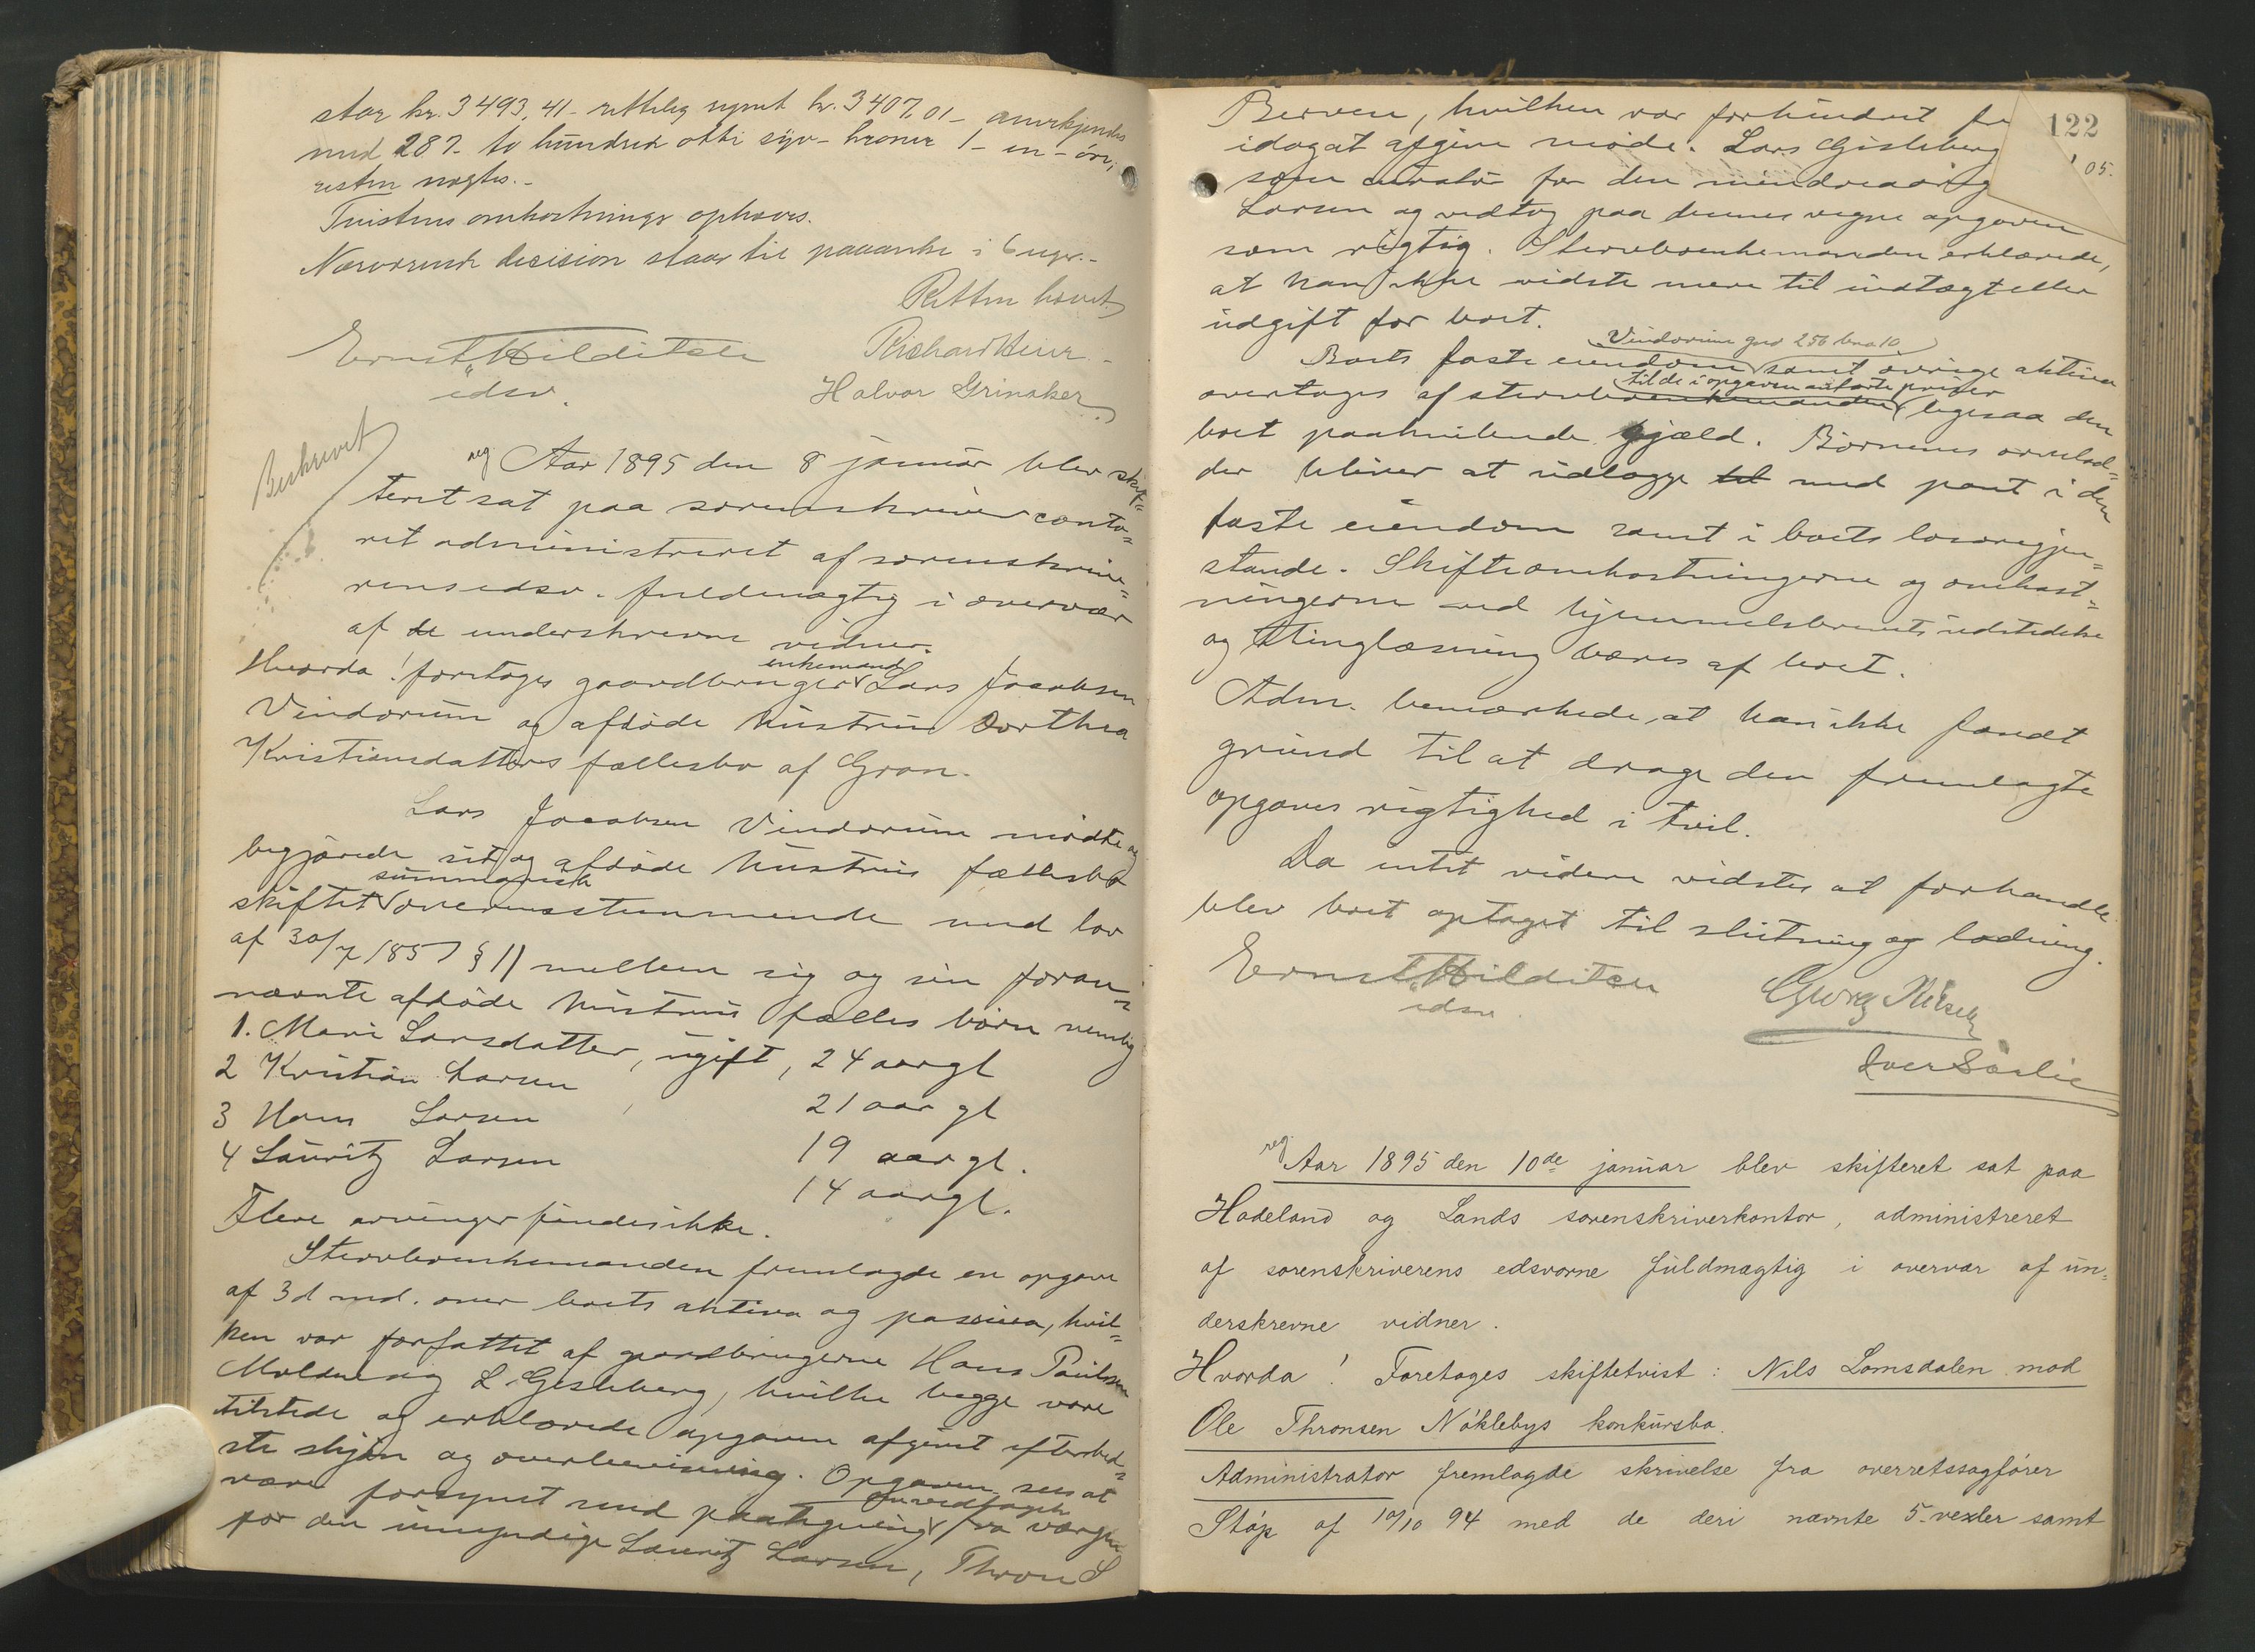 stor kr. 3493,41 – rettelig regnet kr. 3407,01 – anerkjendes
med 287 – to hundrede otti syv – kroner 1 – en – øre,
resten nægtes. –
Tvistens omkostninger ophæves.
Nærværende decision staar til paaanke i 6 uger. –
Retten hævet
Ernst Hilditsch
edsv.
Halvor Grinaker
Beskrevet
reg
Aar 1895 den 8 januar blev skif=
teret sat paa sorenskriver conto=
ret administreret af sorenskrive=
rens edsv. fuldmægtig i overvær
af de underskrevne vidner.
Hvorda! foretages gaardbruger
enkemand
Lars Jacobsen
Vindorum og afdøde hustru Dorthea
Kristiansdatters fællesbo af Gran.
Lars Jacobsen Vindorum mødte og
begjærede sit og afdøde hustrus fællesbo
skiftet
summarisk
overensstemmende med lov
af 30/7 1857 § 11 mellem sig og sin foran=
nævnte afdøde hustrus fælles børn nemlig
1. Mari Larsdatter, ugift, 24 aar gl
2 Kristian Larsen 21 aar gl
3 Hans Larsen 19 aar gl.
4 Lauritz Larsen 14 aar gl.
Flere arvinger findes ikke.
Stervboenkemanden fremlagde en opgave
af 3 d md. over boets aktiva og passiva, hvil=
ken var forfattet af gaardbrugerne Hans Paulsen
og L. Gisleberg, hvilke begge vare
tilstede og erklærede opgaven afgivet efter bed=
ste skjøn og overbevisning. Opgaven sees at
være forsynet med paategning
om vedtagelse
fra værgen
for den umyndige Lauritz Larsen, Thron S
122
'05.
Berven, hvilken var forhindret fra
idag at afgive møde. Lars Gisleberg
som curator for den mindreaarig
Larsen og vedtog paa hennes vegne opgaven
som rigtig. Stervboenkemanden erklærede,
at han ikke vidste mere til indtægt eller
udgift for boet.
Vindorum gno 256 bno 10
Boets faste eiendom samt øvrige aktiva
til de i opgaven anførte priser
overtages af stervboenkemanden ligesaa den
boet paahvilende gjæld. Børnenes arvelod=
der bliver at udlægge til med pant i den
faste eiendom samt i boets løsøregjen=
stande. Skifteomkostningerne og omkost=
ningerne ved hjemmelsbrevets udstedelse
og thinglæsning bæres af boet.
Adm. bemærkede, at han ikke fandt
grund til at drage den fremlagte
opgaves rigtighed i tvil.
Da intet videre vidstes at forhandle
blev boet optaget til slutning og lodning.
Ernst Hilditsch
edsv
Iver Sørlie
reg.
Aar 1895 den 10de januar blev skifteret sat paa
Hadeland og Lands sorenskriverkontor, administreret
af sorenskriverens edsvorne fuldmægtig i overvær af un=
derskrevne vidner.
Hvorda! Foretages skiftetvist: Nils Lomsdalen mod
Ole Thronsen Nøklebys konkursbo.
Administrator fremlagde skrivelse fra overretssagfører
Støp af 10/10 94 med de deri nævnte 5. vexler samt